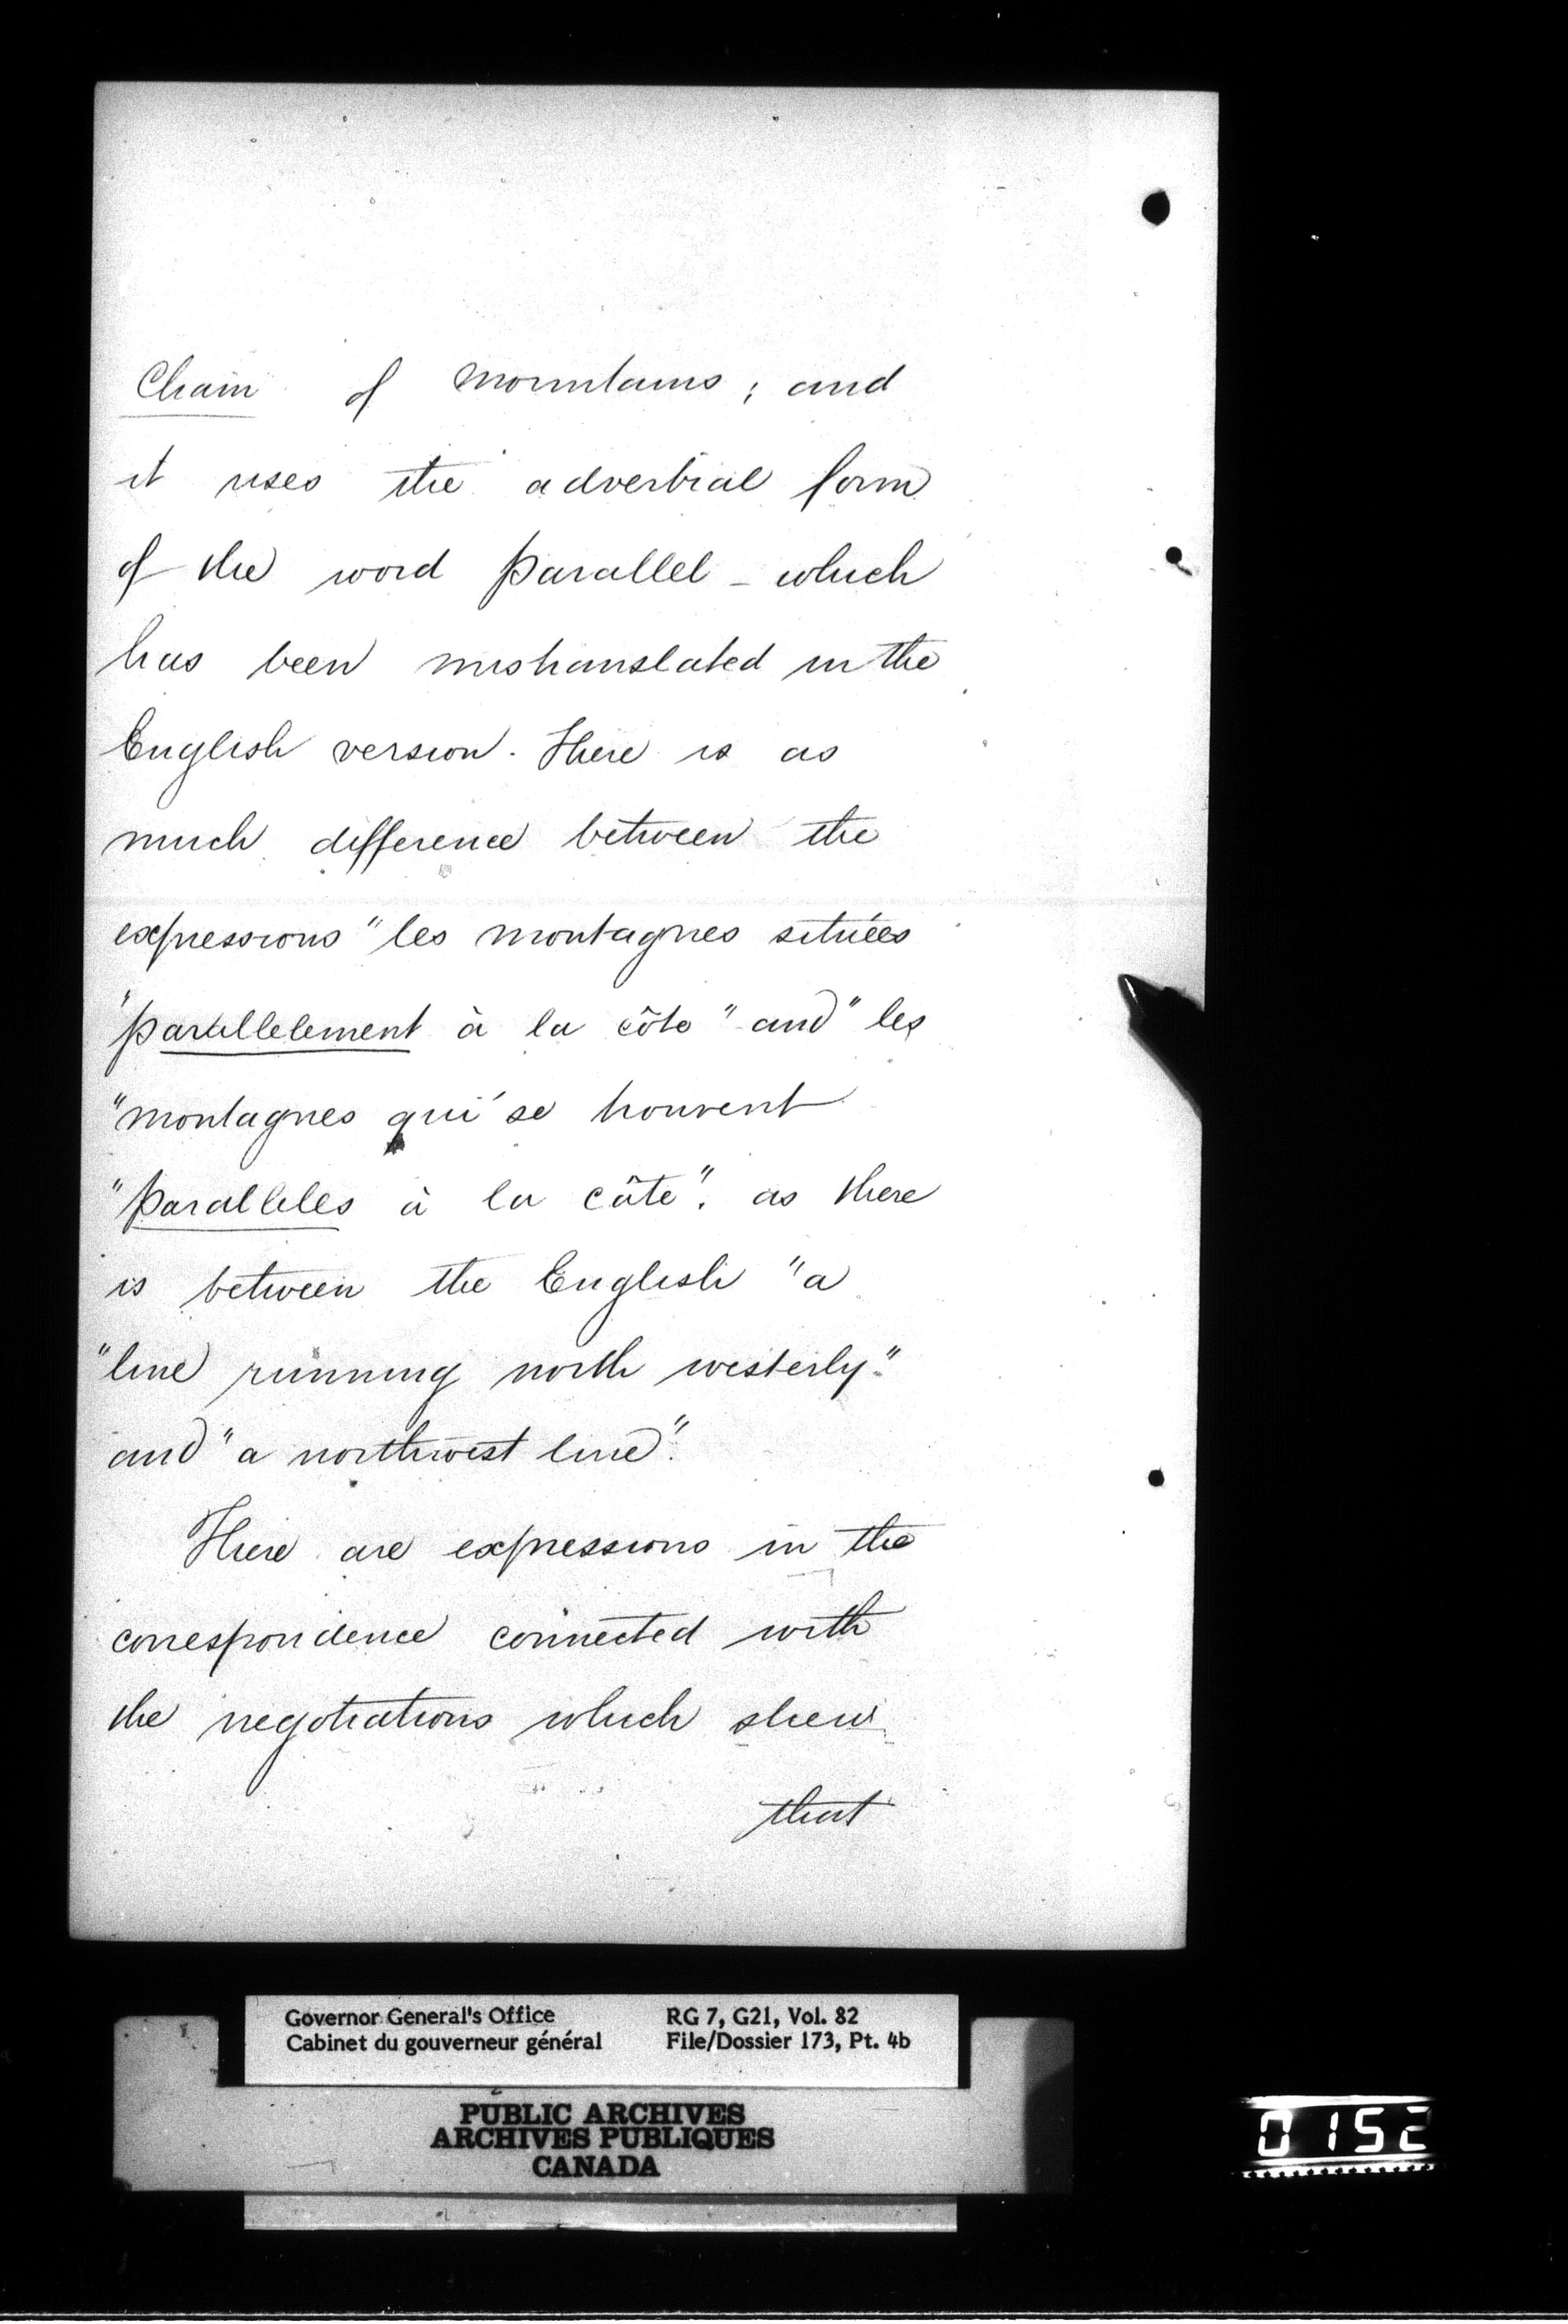 Chain of Mountains; and
it uses the adverbial form
of the word parallel - which
has been mistranslated in the
English version. There is as
much difference between the
expressions "les montagnes situées
"parallelement à la côte" and "les
"montagnes qui se trouvent
"paralleles à la côte". as there
is between the English "a
"line running north westerly"
and "a northwest line".
There are expressions in the
correspondence connected with
the negotiations which shew
that
Governor General's Office RG 7, G21, Vol. 82
Cabinet du gouverneur général File/Dossier 173, Pt. 4b
PUBLIC ARCHIVES
ARCHIVES PUBLIQUES
CANADA
0152